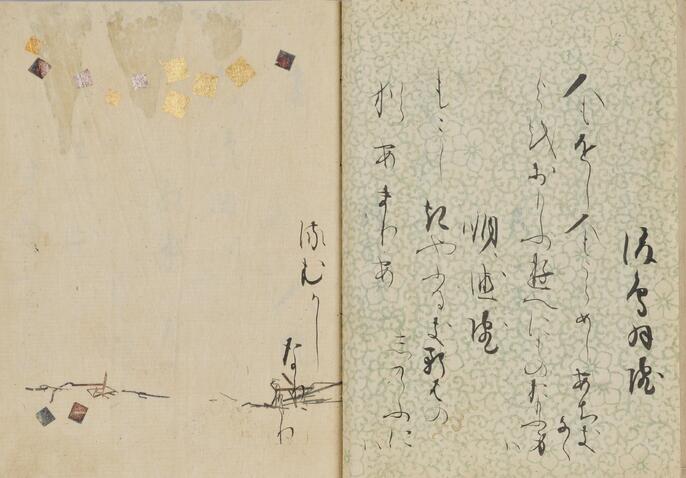 後鳥羽院
人もをし人もうらめしあちき
なく
よをおもふゆへにものおもふ身
は
順徳院
もゝしきやふるき軒はの
しのふに
も
猶あまりあ
るむかし
なりけり